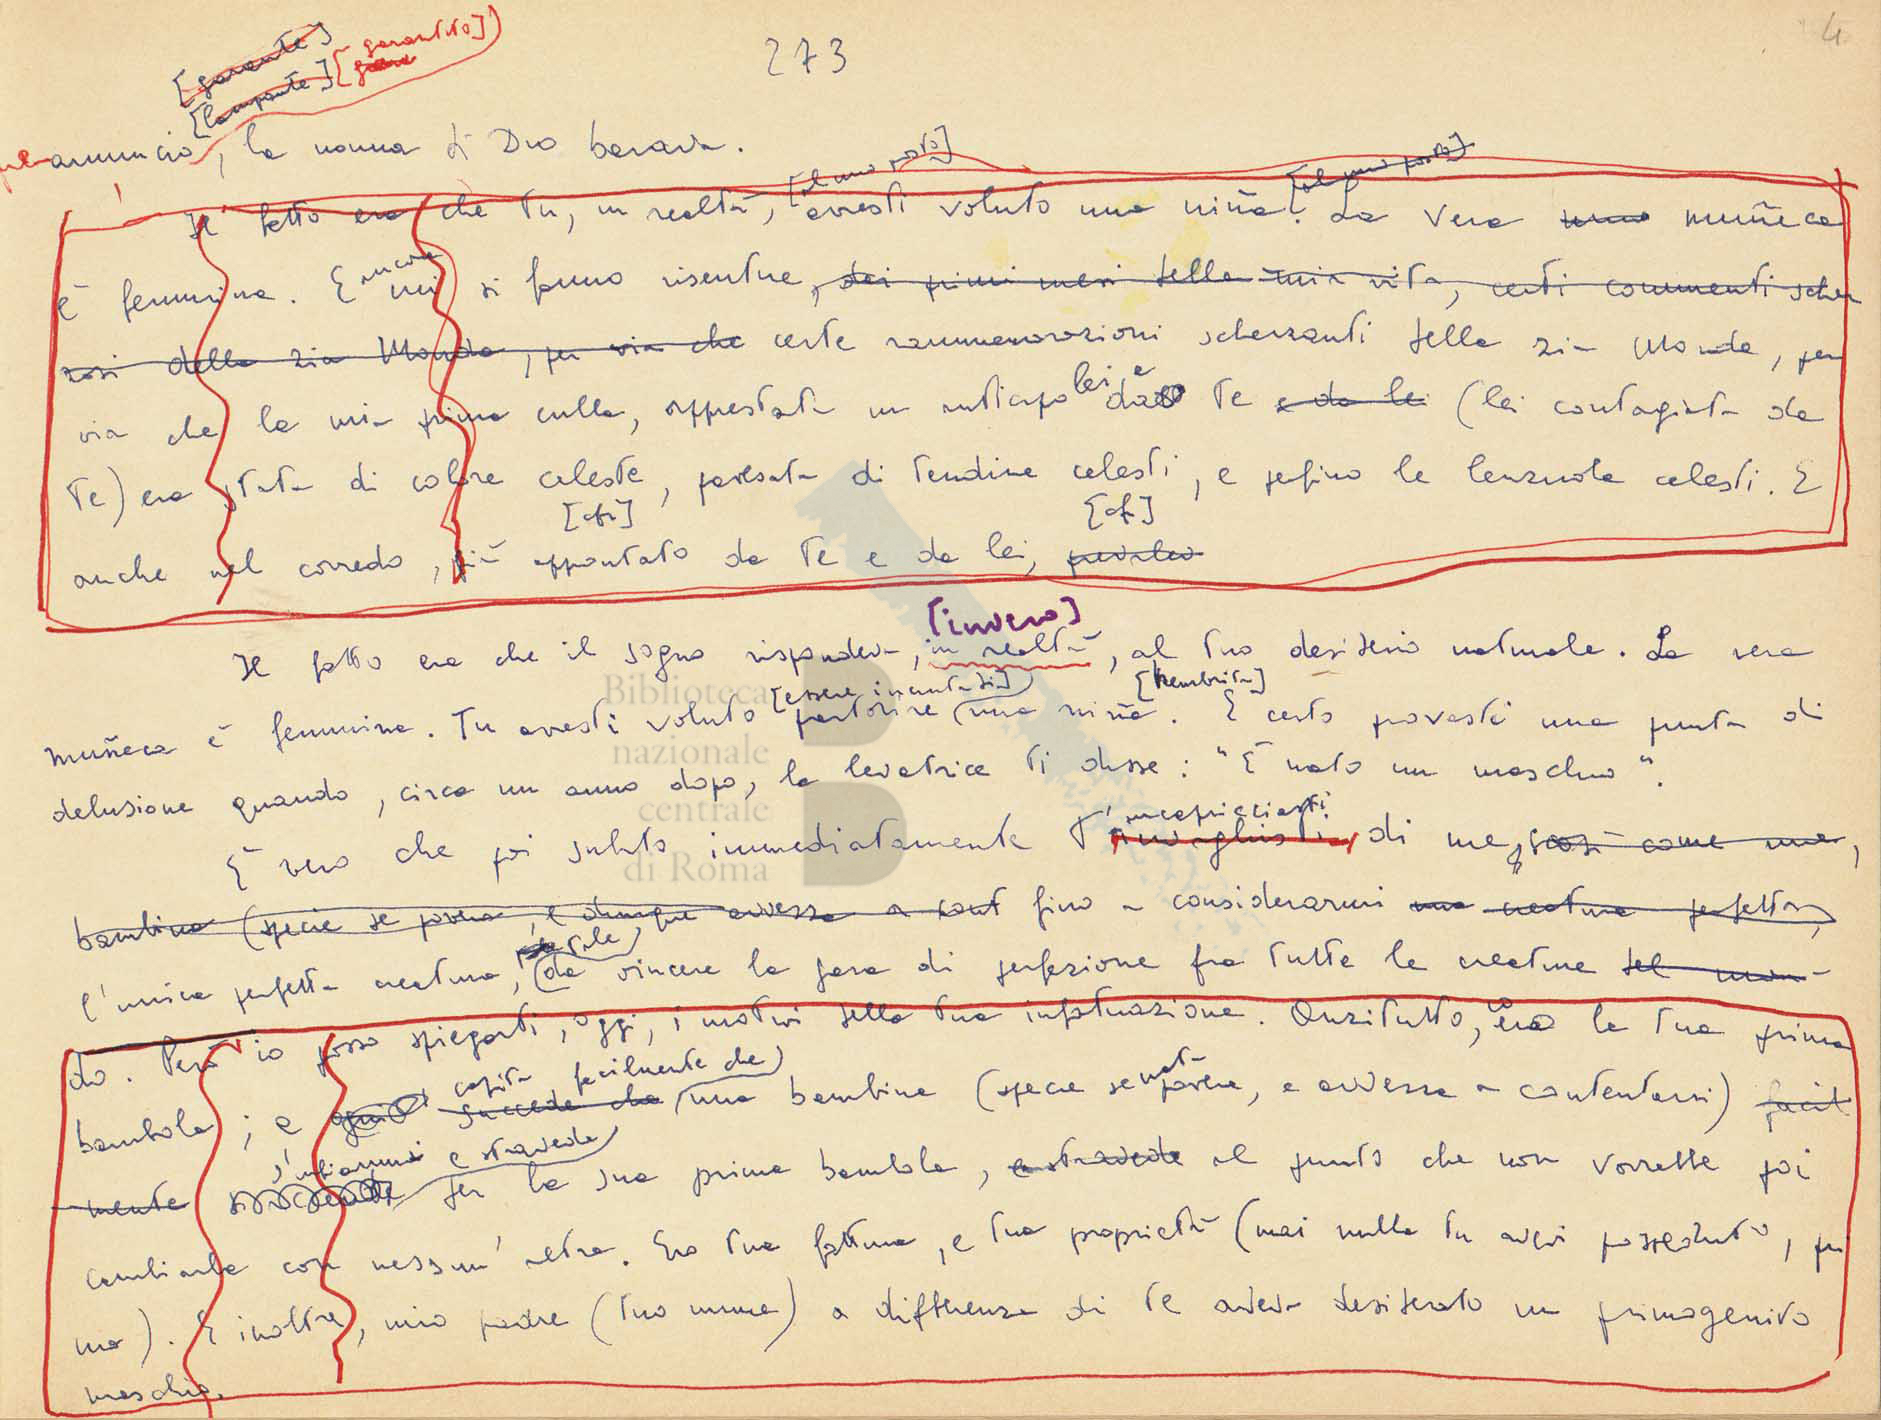 273
4
[garante]
[lampante] [garantito]
preannuncio, la nonna di Dio barava.
[al suo posto] [al suo posto]
Il fatto era che tu, in realtà, avresti voluto una niña. La vera muñeca
è femmina. E ancora mi si fanno risentire, dei primi mesi della mia vita, certi commenti scher
zosi della zia Monda, per via che certe rammemorazioni scherzanti della zia Monda, per
via che la mia prima culla, apprestata in anticipo lei e da te e da lei (lei contagiata da
te) era stata di colore celeste, pavesata di tendine celesti, e perfino le lenzuola celesti. E
anche nel corredo, già approntato da te e da lei,
[invero]
Il fatto era che il sogno rispondeva, in realtà, al tuo desiderio naturale. La vera
[essere incinta di] [hembrita]
muñeca è femmina. Tu avresti voluto partorire una niña. E certo provasti una punta di
delusione quando, circa un anno dopo, la levatrice ti disse: "È nato un maschio".
incapricciasti
È vero che poi subito immediatamente t' di me, così come una,
bambina (specie se povera, e dunque avvezza a cont fino a considerarmi una creatura perfetta,
tale
l'unica perfetta creatura, da vincere la gara di perfezione fra tutte le creature del mon-
do. Però io posso spiegarti, oggi, i motivi della tua infatuazione. Anzitutto, ero la tua prima
capita facilmente che nata
bambola; e succede che una bambina (specie se povera, e avvezza a contentarsi) facil
s'infiammi e straveda
mente per la sua prima bambola, e stravede al punto che non vorrebbe poi
cambiarla con nessun'altra. Ero tua fattura, e tua proprietà (mai nulla tu avevi posseduto, pri
ma). E inoltre, mio padre (tuo nume) a differenza di te aveva desiderato un primogenito
maschio.
Biblioteca
nazionale
centrale
di Roma